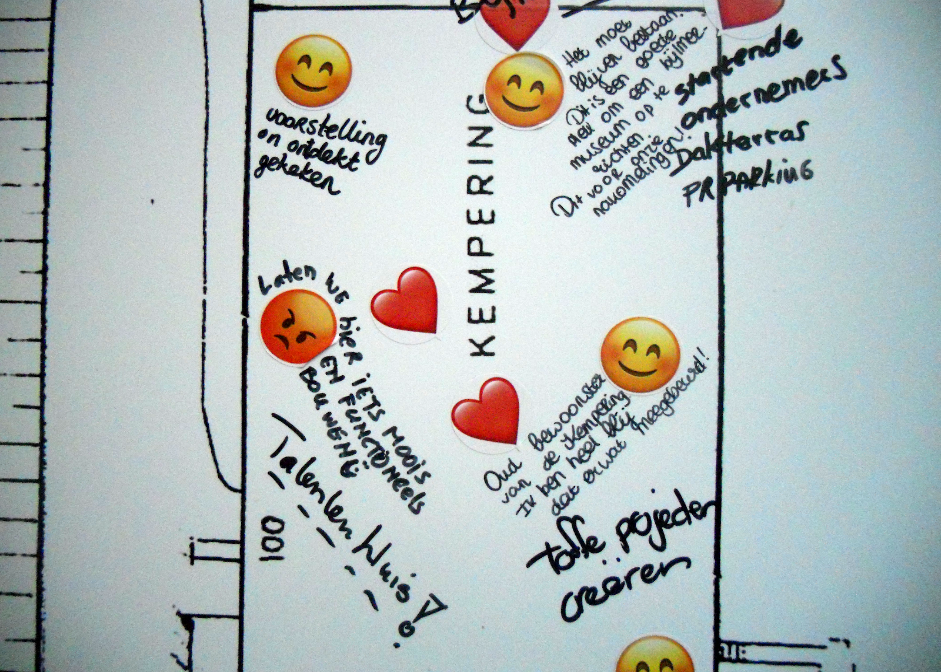 voorstelling
on ontdekt
gekeken
KEMPERING
Het moet
blijven bestaan.
Dit is een goede
plek om een bijlmer-
museum op te
richten
Dit voor onze
nakomelingen!
startende
ondernemers
Dakterras
PR PARKING
Laten we hier IETS MOOIS
EN FUNCTIONEELS
BOUWEN
Talenten Huis!
100
Oud bewoonster
van de Kempering
Ik ben heel blij
dat er wat meegebeurd!
Toffe projecten
creëren